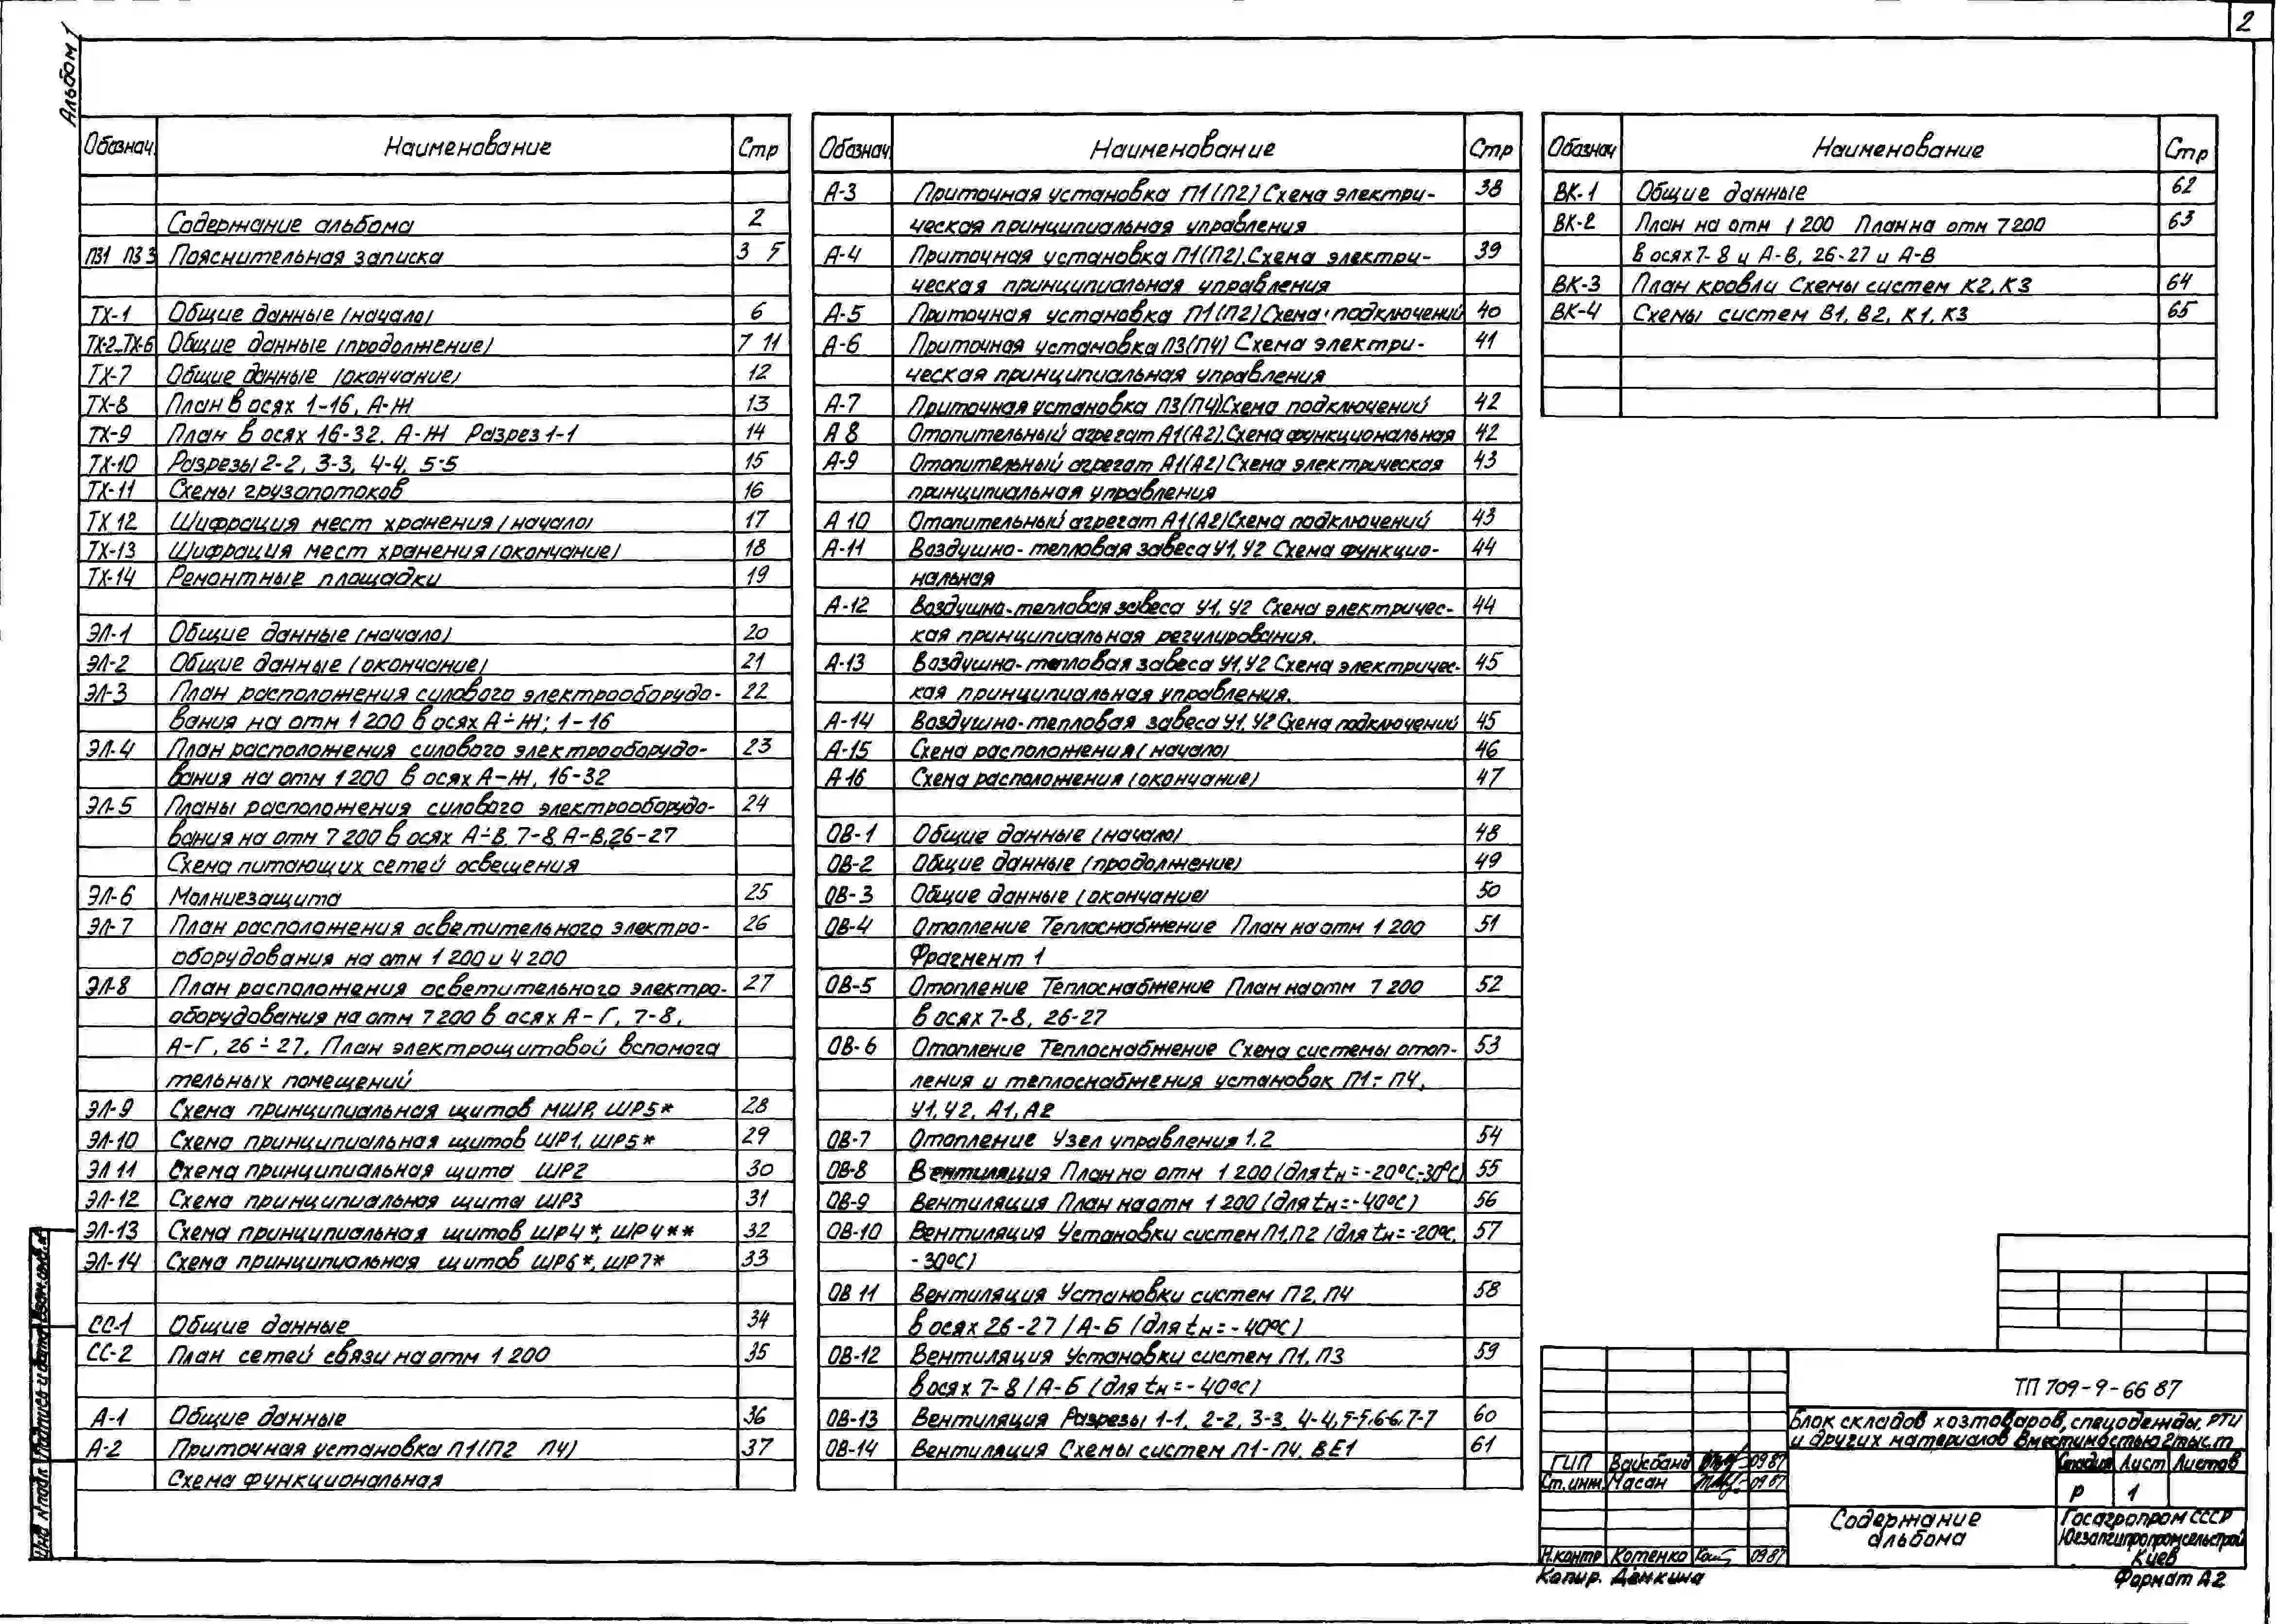 2
Альбом 1
Обознач. Наименование Стр
Содержание альбома 2
ПЗ1 ПЗ3 Пояснительная записка 3 5
ТХ-1 Общие данные (начало) 6
ТХ-2...ТХ-6 Общие данные (продолжение) 7 11
ТХ-7 Общие данные (окончание) 12
ТХ-8 План в осях 1-16, А-Ж 13
ТХ-9 План в осях 16-32, А-Ж Разрез 1-1 14
ТХ-10 Разрезы 2-2, 3-3, 4-4, 5-5 15
ТХ-11 Схемы грузопотоков 16
ТХ 12 Шифрация мест хранения (начало) 17
ТХ-13 Шифрация мест хранения (окончание) 18
ТХ-14 Ремонтные площадки 19
ЭЛ-1 Общие данные (начало) 20
ЭЛ-2 Общие данные (окончание) 21
ЭЛ-3 План расположения силового электрооборудо- 22
вания на отм 1 200 в осях А÷Ж; 1-16
ЭЛ-4 План расположения силового электрооборудо- 23
вания на отм 1 200 в осях А-Ж, 16-32
ЭЛ-5 Планы расположения силового электрооборудо- 24
вания на отм 7 200 в осях А÷В, 7-8, А-В, 26-27
Схема питающих сетей освещения
ЭЛ-6 Молниезащита 25
ЭЛ-7 План расположения осветительного электро- 26
оборудования на отм 1 200 и 4 200
ЭЛ-8 План расположения осветительного электро- 27
оборудования на отм 7 200 в осях А-Г, 7-8,
А-Г, 26÷27. План электрощитовой вспомога
тельных помещений
ЭЛ-9 Схема принципиальная щитов МШР, ШР5* 28
ЭЛ-10 Схема принципиальная щитов ШР1, ШР5* 29
ЭЛ 11 Схема принципиальная щита ШР2 30
ЭЛ-12 Схема принципиальная щита ШР3 31
ЭЛ-13 Схема принципиальная щитов ШР4*, ШР4** 32
ЭЛ-14 Схема принципиальная щитов ШР6*, ШР7* 33
СС-1 Общие данные 34
СС-2 План сетей связи на отм 1 200 35
А-1 Общие данные 36
А-2 Приточная установка П1(П2 П4) 37
Схема функциональная
Обознач. Наименование Стр
А-3 Приточная установка П1(П2) Схема электри- 38
ческая принципиальная управления
А-4 Приточная установка П1(П2). Схема электри- 39
ческая принципиальная управления
А-5 Приточная установка П1(П2) Схема подключений 40
А-6 Приточная установка П3(П4) Схема электри- 41
ческая принципиальная управления
А-7 Приточная установка П3(П4) Схема подключений 42
А 8 Отопительный агрегат А1(А2). Схема функциональная 42
А-9 Отопительный агрегат А1(А2) Схема электрическая 43
принципиальная управления
А 10 Отопительный агрегат А1(А2) Схема подключений 43
А-11 Воздушно-тепловая завеса У1, У2 Схема функцио- 44
нальная
А-12 Воздушно-тепловая завеса У1, У2 Схема электричес- 44
кая принципиальная регулирования.
А-13 Воздушно-тепловая завеса У1, У2 Схема электричес- 45
кая принципиальная управления.
А-14 Воздушно-тепловая завеса У1, У2 Схема подключений 45
А-15 Схема расположения (начало) 46
А 16 Схема расположения (окончание) 47
ОВ-1 Общие данные (начало) 48
ОВ-2 Общие данные (продолжение) 49
ОВ-3 Общие данные (окончание) 50
ОВ-4 Отопление Теплоснабжение План на отм 1 200 51
Фрагмент 1
ОВ-5 Отопление Теплоснабжение План на отм 7 200 52
в осях 7-8, 26-27
ОВ-6 Отопление Теплоснабжение Схема системы отоп- 53
ления и теплоснабжения установок П1÷П4,
У1, У2, А1, А2
ОВ-7 Отопление Узел управления 1.2 54
ОВ-8 Вентиляция План на отм 1 200 (для tн=-20°С;-30°С) 55
ОВ-9 Вентиляция План на отм 1 200 (для tн=-40°С) 56
ОВ-10 Вентиляция Установки систем П1, П2 (для tн=-20°С, 57
-30°С)
ОВ 11 Вентиляция Установки систем П2, П4 58
в осях 26-27/А-Б (для tн=-40°С)
ОВ-12 Вентиляция Установки систем П1, П3 59
в осях 7-8/А-Б (для tн=-40°С)
ОВ-13 Вентиляция Разрезы 1-1, 2-2, 3-3, 4-4, 5-5, 6-6, 7-7 60
ОВ-14 Вентиляция Схемы систем П1-П4, ВЕ1 61
Обознач Наименование Стр
ВК-1 Общие данные 62
ВК-2 План на отм 1 200 План на отм 7 200 63
в осях 7-8 и А-В, 26-27 и А-В
ВК-3 План кровли Схемы систем К2, К3 64
ВК-4 Схемы систем В1, В2, К1, К3 65
ТП 709-9-66 87
Блок складов хозтоваров, спецодежды, РТИ
и других материалов вместимостью 2 тыс.т
ГИП Вайсбанд 09 87
Ст. инж. Масан 09 87
Стадия Лист Листов
Р 1
Содержание
альбома
Госагропром СССР
Югзапгипропромсельстрой
Киев
Н.контр Котенко 09 87
Копир. Демкина
Формат А2
Инв № подл Подпись и дата Взам. инв. №